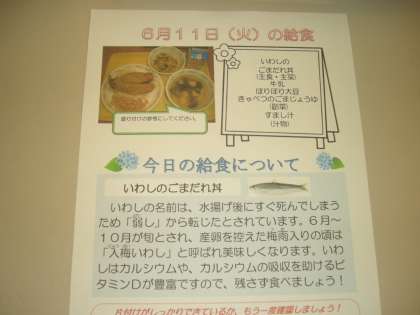 6月11日(火)の給食
いわしの
ごまだれ丼
(主食・主菜)
牛乳
ぽりぽり大豆
きゃべつのごまじょうゆ
(副菜)
すまし汁
(汁物)
盛り付けの参考にしてください。
今日の給食について
いわしのごまだれ丼
いわしの名前は、水揚げ後にすぐ死んでしまう
ため「弱し」から転じたとされています。6月～
10月が旬とされ、産卵を控えた梅雨入りの頃は
「入梅いわし」と呼ばれ美味しくなります。いわ
しはカルシウムや、カルシウムの吸収を助けるビ
タミンDが豊富ですので、残さず食べましょう！
片付けがしっかりできているか、もう一度確認しましょう！